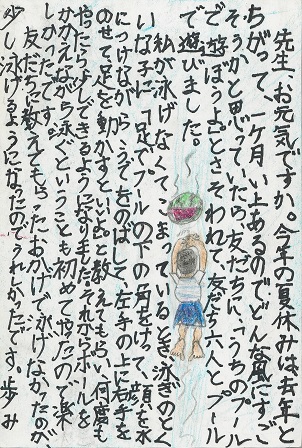 先生、お元気ですか。今年の夏休みは去年と
ちがって、一ヶ月い上あるのでどんな風にすご
そうかと思っていたら友だちに「うちのプール
で遊ぼうよ」とさそわれて、友だち六人とプール
で遊びました。
私が泳げなくてこまっているとき泳ぎのとく
いな子に「足でプールの下の角をけって、顔を水
につけながらうでをのばして左手の上に右手を
のせて足を動かすといいよ」と教えてもらい、何度も
やったら少しできるようになりました。それからボールを
かかえながら泳ぐということも初めてやったので楽
しかったです。
友だちに教えてもらったおかげで泳げなかったが、
少し泳げるようになったのでうれしかったです。歩み